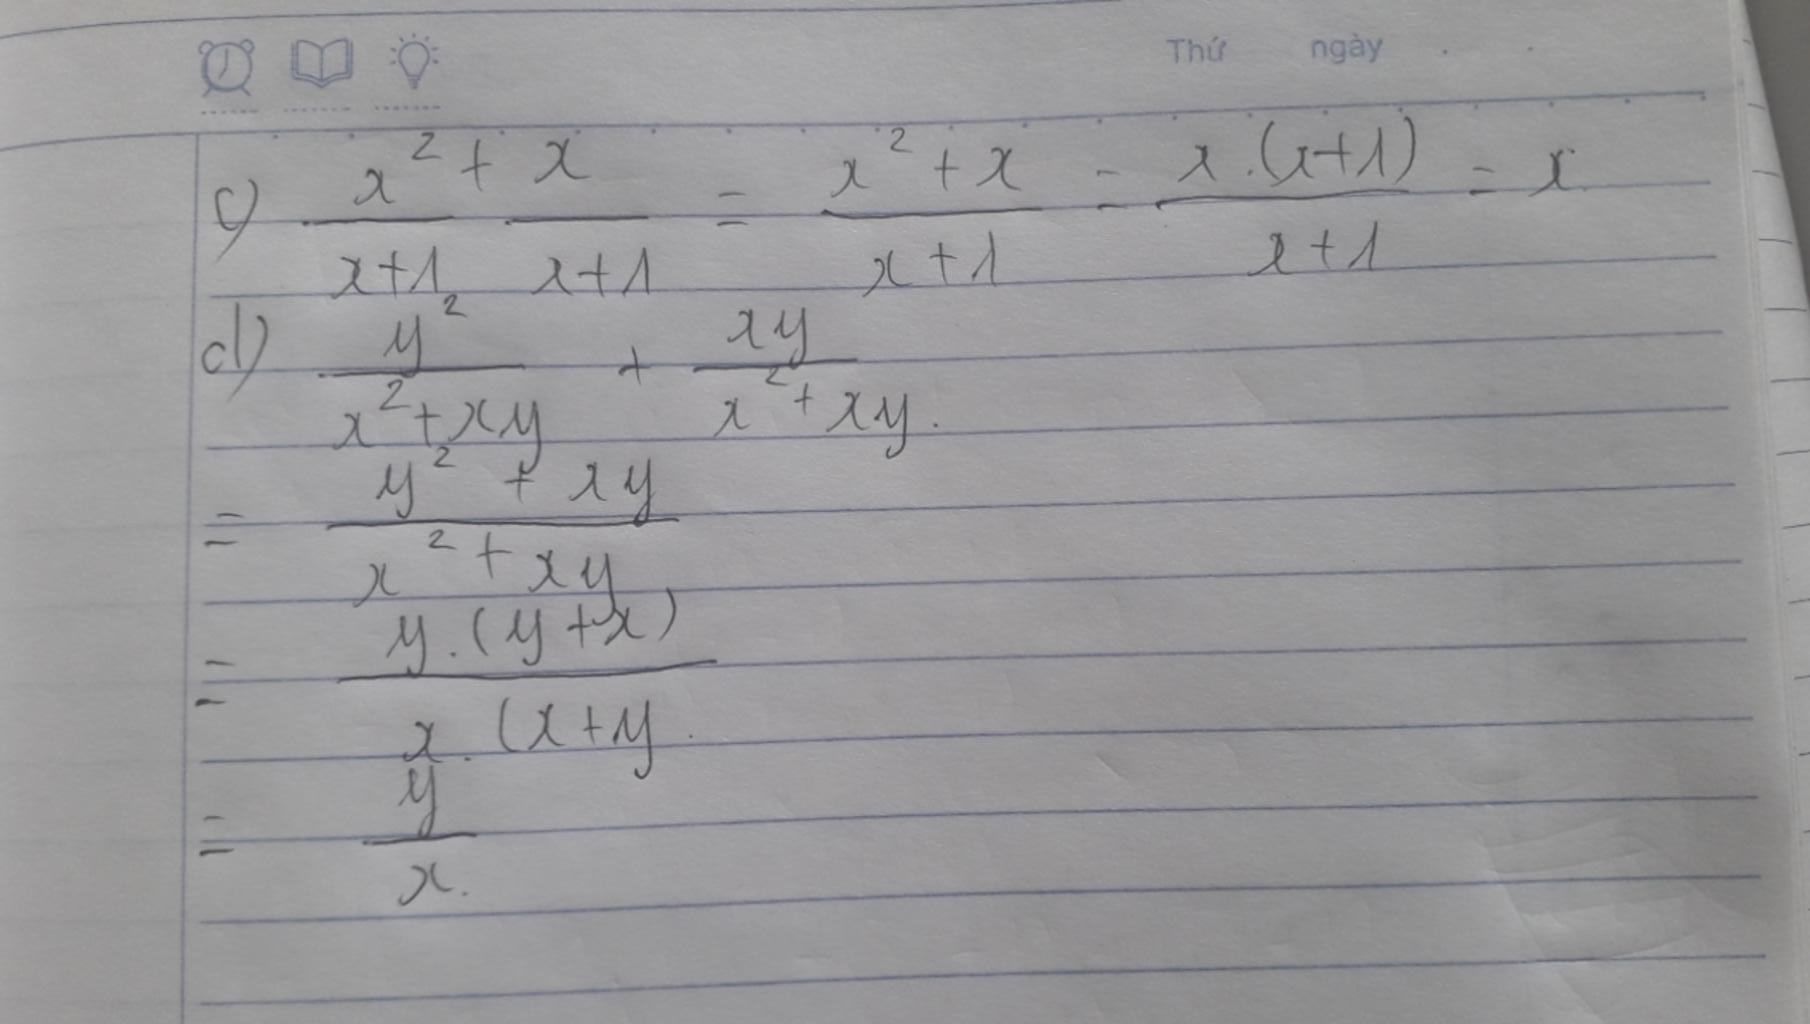 Thứ ngày
c) x²/(x+1) + x/(x+1) = (x² + x)/(x+1) = x.(x+1)/(x+1) = x.
d) y²/(x²+xy) + xy/(x²+xy).
= (y² + xy)/(x² + xy)
= y.(y+x)/x.(x+y.
= y/x.